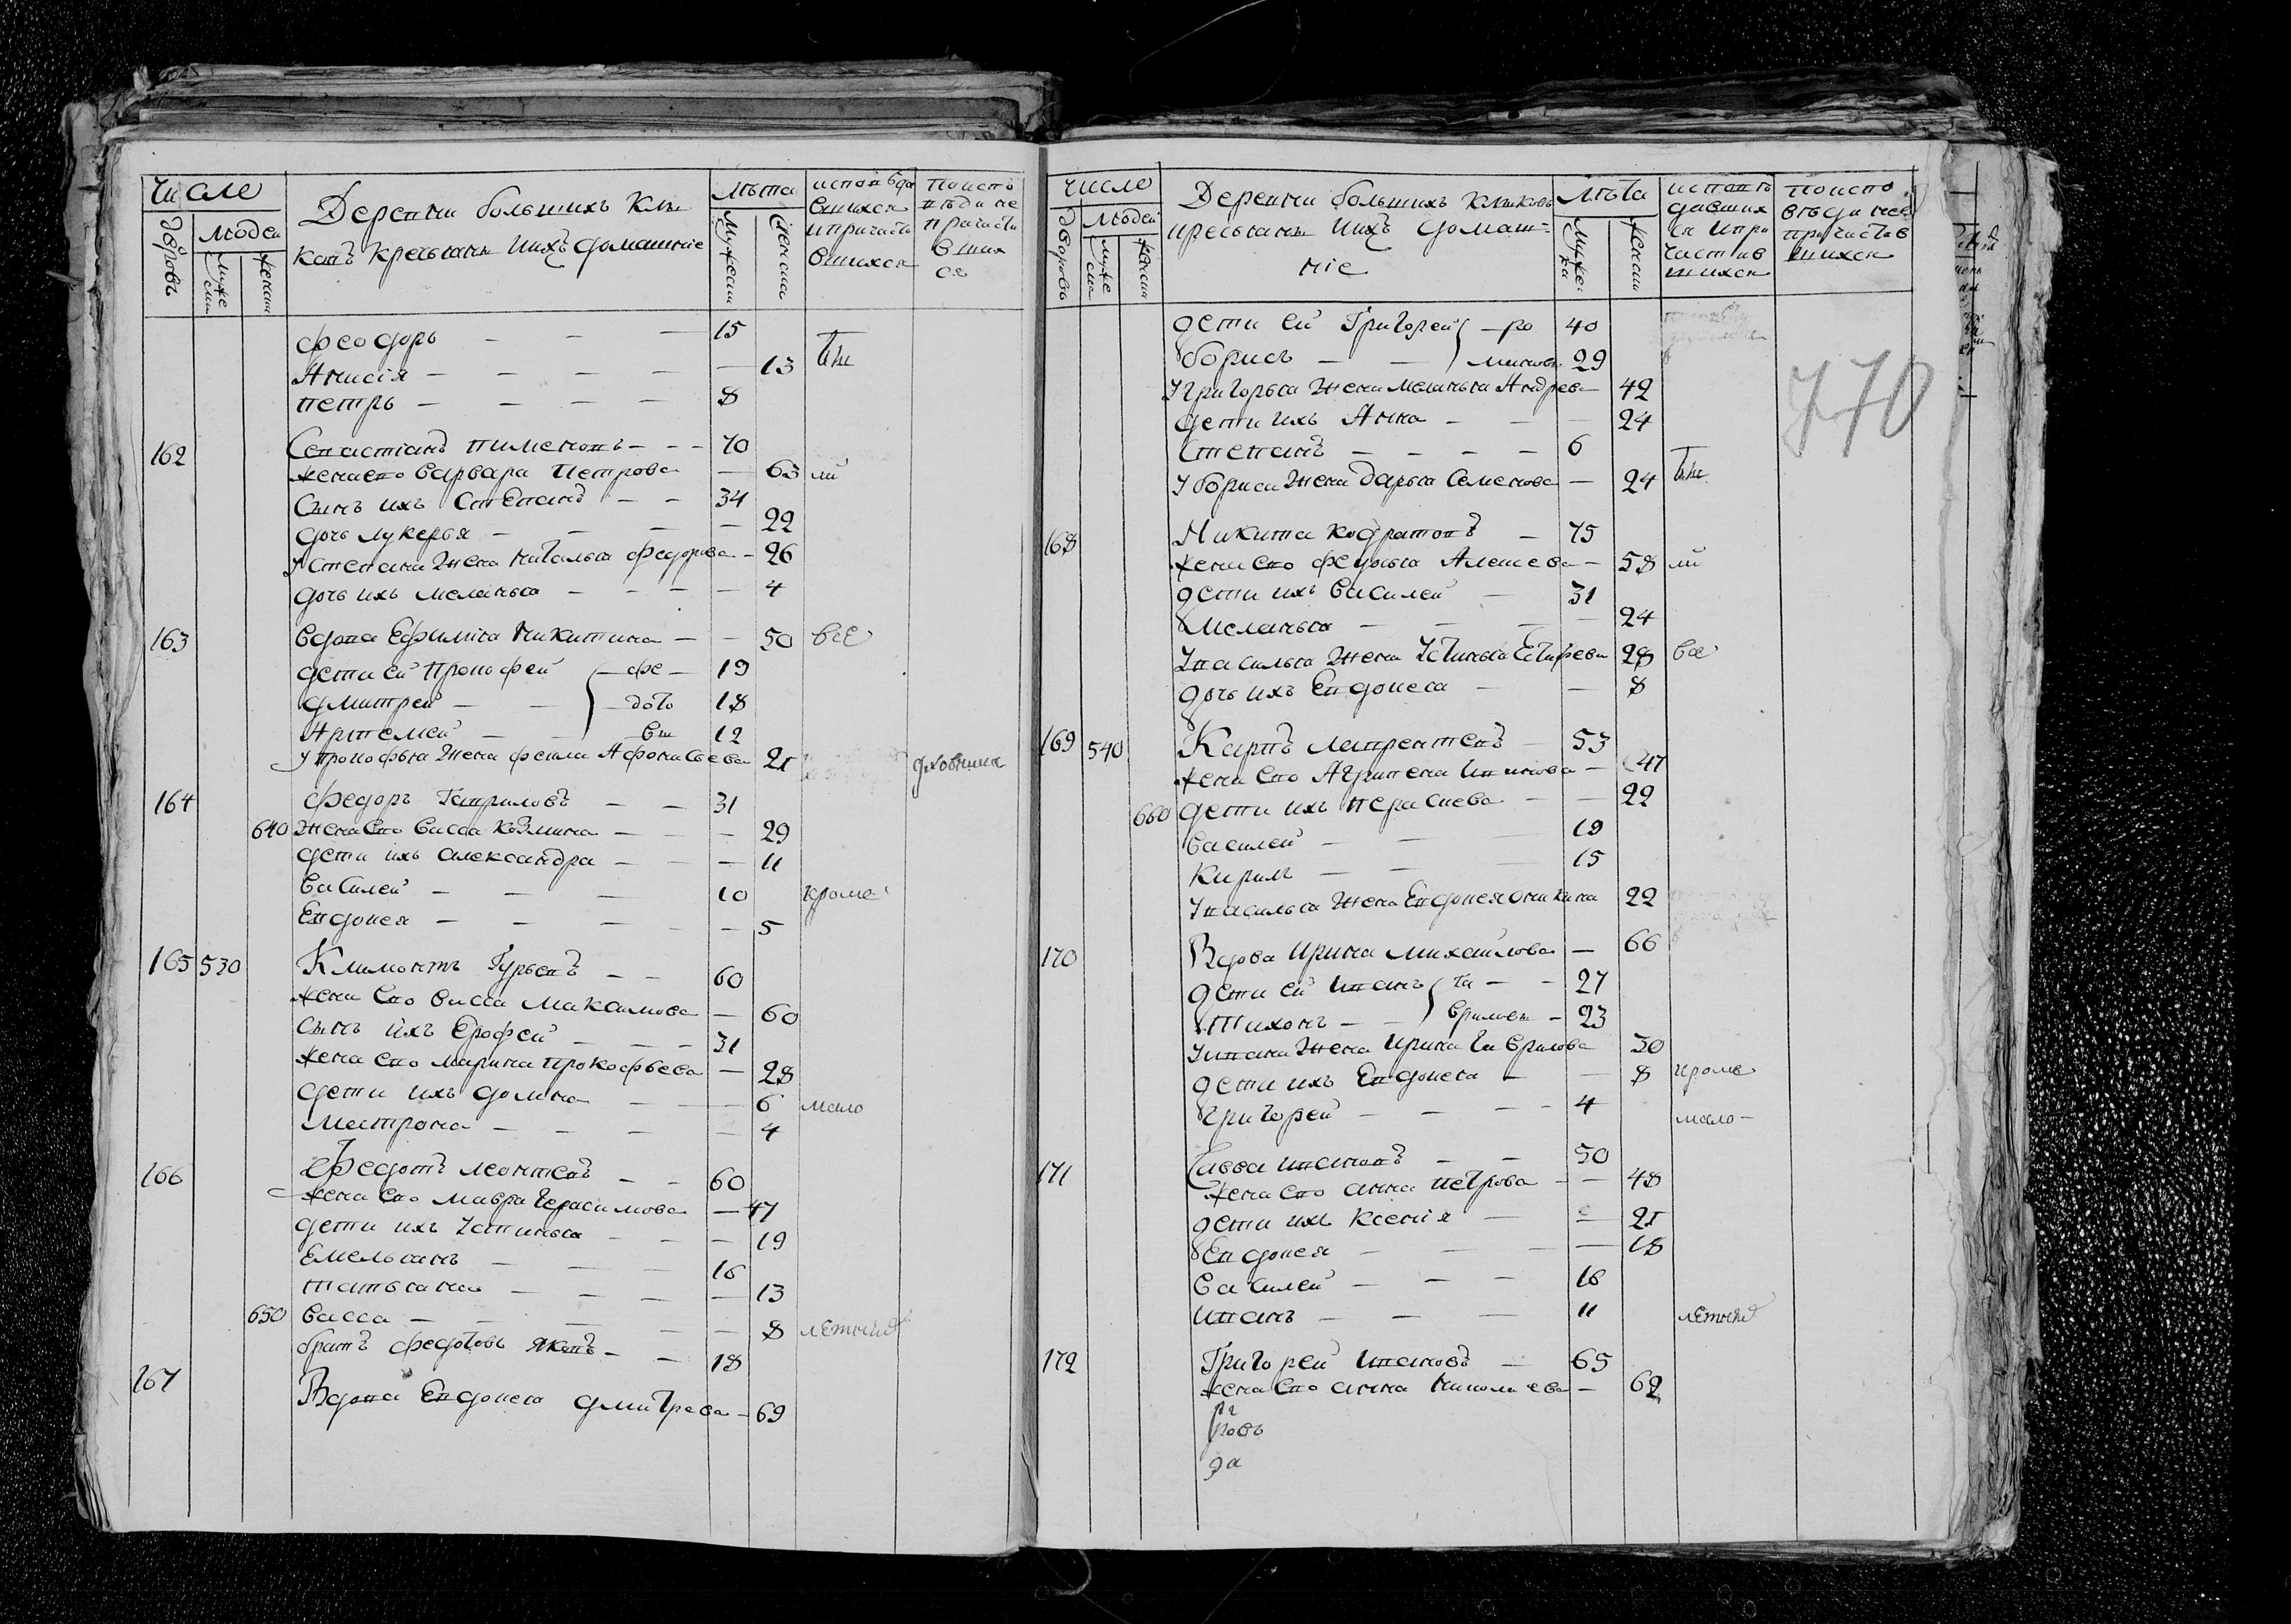 Число
Деревни большихъ Клы
ковъ крестьяне ихъ домашніе
лѣта
исповѣда
вшихся
ипричасти
вшихся
поиспо
вѣди не
причасти
вших
ся
дворовъ
людей
муже
ски
женски
мужески
женски
Феодоръ — — — 15
Анисія — — — — — 13
петръ — — — — 8
162 Севастіанъ пименовъ — — — 70
жена ево варвара Петрова — 63
Сынъ ихъ Стефанъ — — 34
дочь лукерья — — — 22
У степана жена наталья федорова — 26
дочь ихъ меланья — — — — 4
163 вдова Ефимія никитина — — 50 все
дети ей Прокофей — фе — 19
дмитрей — — дото 18
Артемей — — вы 12
У прокофья жена фекла Афонасьева 21
164 Федоръ Гавриловъ — — 31
640 жена ево васса козмина — — — 29
дети ихъ александра — — — 11
василей — — — 10 кроме
Евдокея — — — — — 5
165 530 Климонтъ Гурьевъ — — 60
жена ево васса Максимова — 60
сынъ ихъ Ерофей — — — 31
жена ево марина прокофьева — 28
дети ихъ домна — — — 6 мало
матрона — — — — 4
166 Федотъ леонтевъ — — 60
жена ево мавра герасимова — 47
дети ихъ устинья — — — 19
Емельянъ — — — 16
татьяна — — — — 13
650 васса — — — — — 8 летныхъ
братъ федотовъ яковъ — — 18
167 Вдова Евдокея дмитрева — 69
число
Деревни большихъ клыковъ
крестьяне ихъ домаш=
ніе
лѣта
исповѣ
давших
ся ипри
частив
шихся
поиспо
вѣди не
причастив
шихся
дворовъ
людей
муже
ски
женски
мужес
ки
женски
770
дети ей Григорей — ро 40
борисъ — — 29
У григорья жена меланья Андрева — 42
дети ихъ Анна — — — 24
Степанъ — — — — 6
У бориса жена дарья Семенова — 24
168 Никита кодратовъ — 75
жена ево федосья Алексева — 58
дети ихъ василей — 31
меланья — — — — 24
У василья жена устинья 28 все
дочь ихъ Евдокея — — 8
169 540 Карпъ лаврентевъ — 53
жена ево Агрипена Иванова — 47
660 дети ихъ — — 22
василей — — — 19
Кирилъ — — — 15
У василья жена Евдокея аникина 22
170 Вдова Ирина михаилова — 66
дети ей Иванъ га — — 27
Тихонъ — — вриловы — 23
У ивана жена Ирина Гаврилова 30
дети ихъ Евдокея — — 8 кроме
григорей — — — — 4 мало —
171 Савва ивановъ — — 50
жена ево анна петрова — — 48
дети ихъ ксенія — — 21
Евдокея — — — — 18
василей — — — 16
иванъ — — — 11 летныхъ
172 Григорей ивановъ — 65
жена ево анна николаева — 62